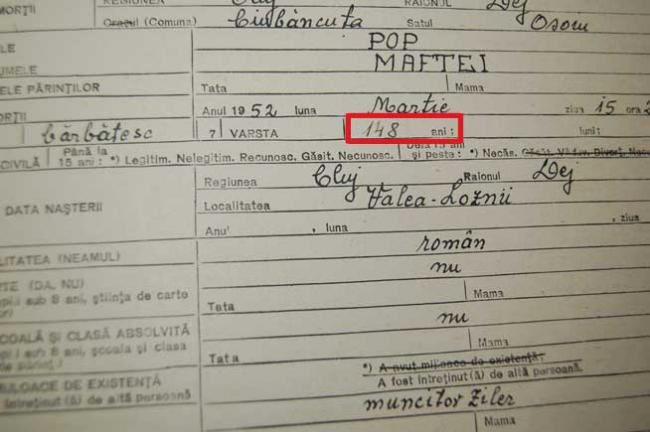 MORȚII REGIUNEA Cluj RAIONUL Dej
Orașul (Comuna) Ciubăncuța Satul Osoru
ELE POP
UMELE MAFTEI
ELE PĂRINȚILOR Tata Mama
ORȚII Anul 1952 luna Martie ziua 15 ora
bărbătesc 7 VARSTA 148 ani: luni:
CIVILĂ Până la 15 ani: *) Legitim. Nelegitim. Recunosc. Găsit. Necunosc. Dela 15 ani și peste: *) Necăs. Căsăt. Văduv. Divorț.
Regiunea Cluj Raionul Dej
DATA NAȘTERII Localitatea Valea-Loznii
Anu' , luna , ziua
LITATEA (NEAMUL) român
RTE (DA, NU) nu
pii sub 8 ani, știința de carte Tata Mama
lor)
COALĂ ȘI CLASĂ ABSOLVITĂ nu
sub 8 ani, școala și clasa Tata Mama
*) A avut mijloace de existență.
A fost întreținut(ă) de altă persoană.
IJLOACE DE EXISTENȚĂ
întreținut (ă) de altă persoană muncitor ziler
Mama